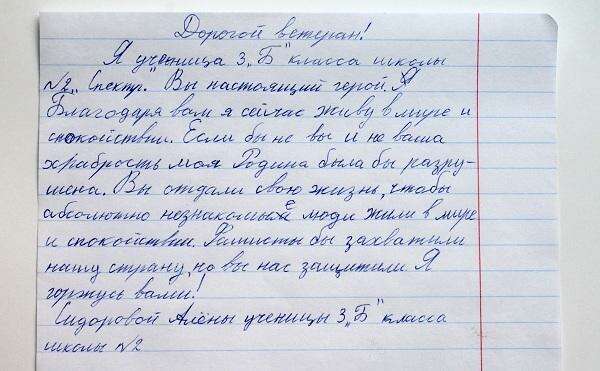 Дорогой ветеран!
Я ученица 3 „Б" класса школы
№2 „Спектр." Вы настоящий герой. Я
Благодаря вам я сейчас живу в мире и
спокойствии. Если бы не вы и не ваша
храбрость моя Родина была бы разру-
шена. Вы отдали свою жизнь, чтобы
абсолютно незнакомые люди жили в мире
и спокойствии. Фашисты бы захватили
нашу страну, но вы нас защитили Я
горжусь вами!
Сидоровой Алёны ученицы 3 „Б" класса
школы №2